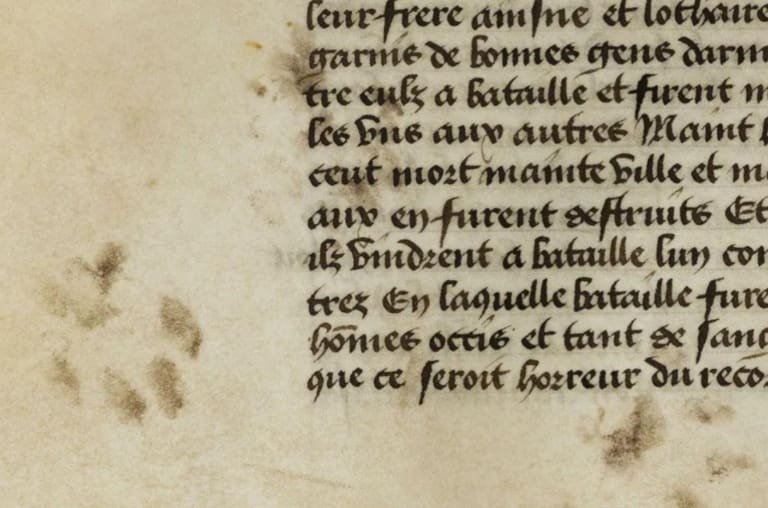 leur frere ainsne et lothaire
garnis de bonnes gens darm
tre eulz a bataille et firent m
les vns aux autres Maint
ceut mort mainte ville et m
aux en furent destruits Et
ilz vindrent a bataille lun con
trez En laquelle bataille fure
hōmes occis et tant de sang
que ce seroit horreur du reco